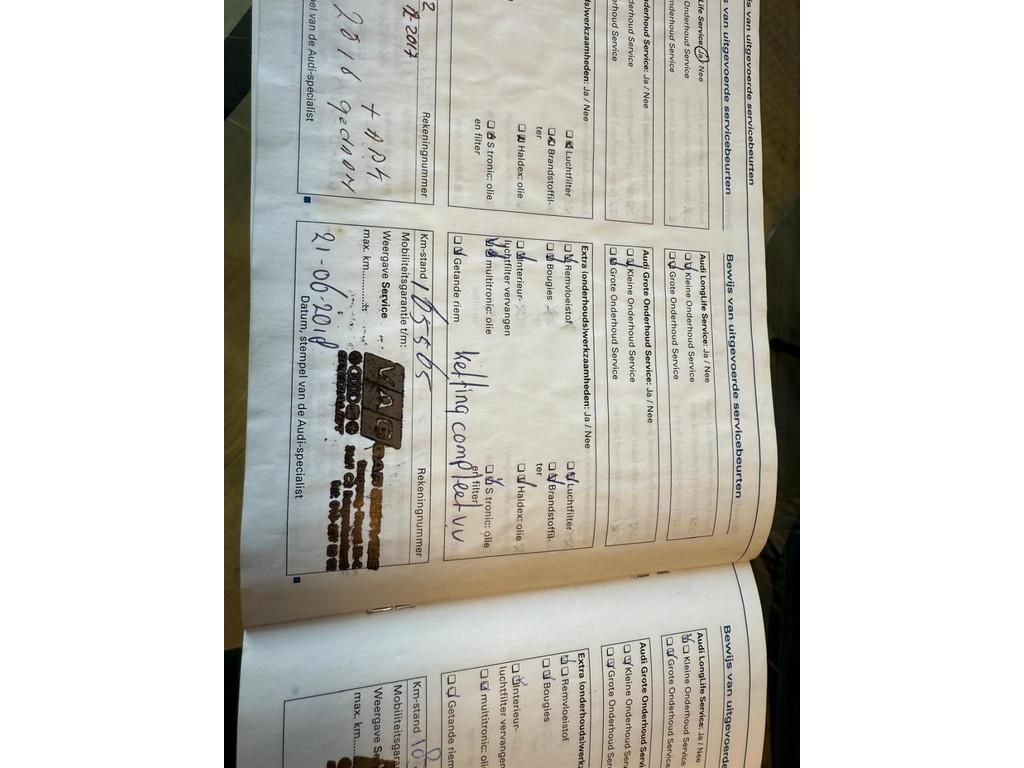 Bewijs van uitgevoerde servicebeurten
LongLife Service: Ja Nee
Onderhoud Service
Onderhoud Service
Onderhoud Service: Ja / Nee
Onderhoud Service
Onderhoud Service
werkzaamheden: Ja / Nee
Luchtfilter
Brandstoffil-
ter
Haldex: olie
S tronic: olie
en filter
2017
Rekeningnummer
+ APK
2018 gedaan
pel van de Audi-specialist
Bewijs van uitgevoerde servicebeurten
Audi LongLife Service: Ja / Nee
Kleine Onderhoud Service
Grote Onderhoud Service
Audi Grote Onderhoud Service: Ja / Nee
Kleine Onderhoud Service
Grote Onderhoud Service
Extra (onderhouds)werkzaamheden: Ja / Nee
Remvloeistof
Luchtfilter
Bougies
Brandstoffil-
ter
Interieur-
luchtfilter vervangen
Haldex: olie
multitronic: olie
S tronic: olie
en filter
Getande riem
ketting compleet v.v
Km-stand 165505
Rekeningnummer
Mobiliteitsgarantie t/m:
Weergave Service
max. km
VAG
21-06-2018
Datum, stempel van de Audi-specialist
Bewijs van uitgevoerde
Audi LongLife Service: Ja / Nee
Kleine Onderhoud Service
Grote Onderhoud Service
Audi Grote Onderhoud Servi
Kleine Onderhoud Service
Grote Onderhoud Service
Extra (onderhouds)werkz
Remvloeistof
Bougies
Interieur-
luchtfilter vervangen
multitronic: oli
Getande riem
Km-stand 18
Mobiliteitsgara
Weergave Se
max. km